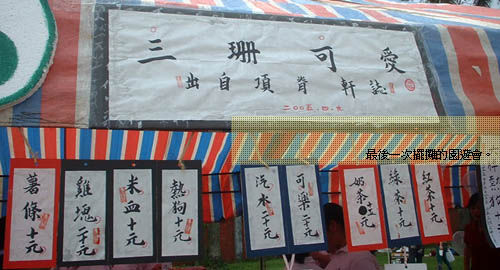 三珊可愛
出自項脊軒誌
二〇〇五.四.九
最後一次擺攤的園遊會。
薯條 十元
雞塊 二十元
米血 十元
熱狗 十元
汽水 二十元
可樂 二十元
奶茶 十五元
綠茶 十元
紅茶 十元